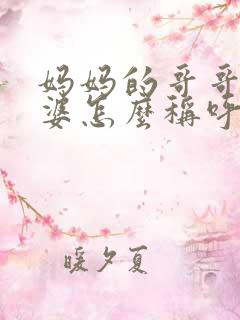 妈妈的哥哥
婆怎麼稱呼
暖夕夏